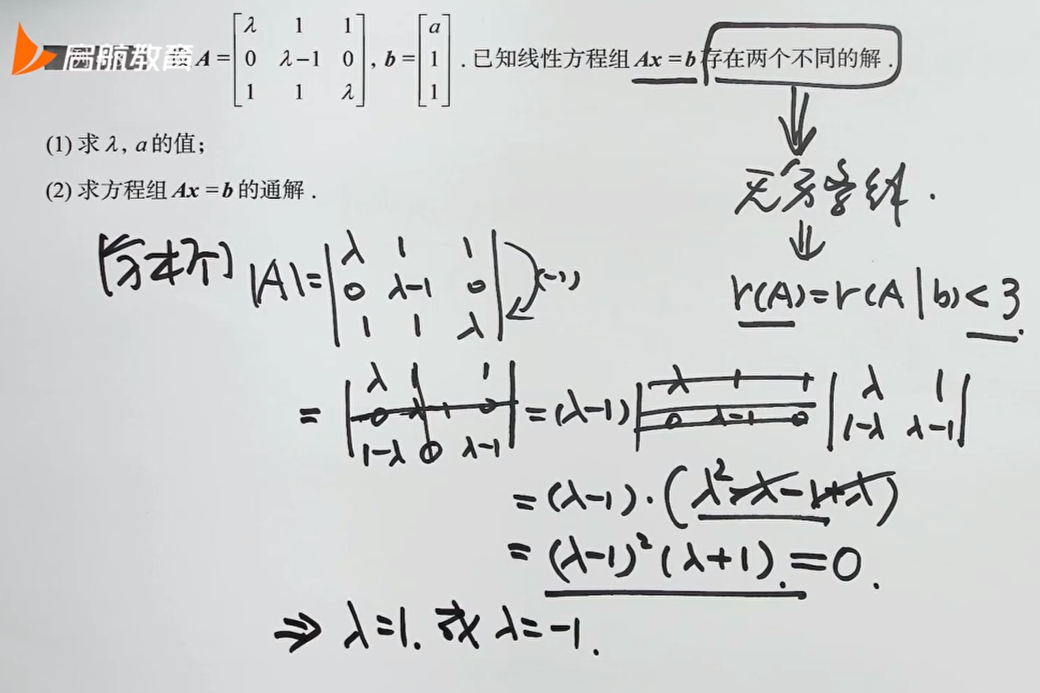 启航教育 A = [λ 1 1; 0 λ-1 0; 1 1 λ], b = [a; 1; 1]. 已知线性方程组 Ax = b 存在两个不同的解.
(1) 求 λ, a 的值;
(2) 求方程组 Ax = b 的通解.
无穷多解.
r(A)=r(A|b)<3.
|A|= |λ 1 1; 0 λ-1 0; 1 1 λ| (-1)
= |λ 1 1; 0 λ-1 0; 1-λ 0 λ-1| =(λ-1) |λ 1 1; 0 λ-1 0 |λ 1; 1-λ λ-1|
=(λ-1)·(λ²-λ-1+λ)
=(λ-1)²(λ+1).=0.
⇒ λ=1. 或 λ=-1.